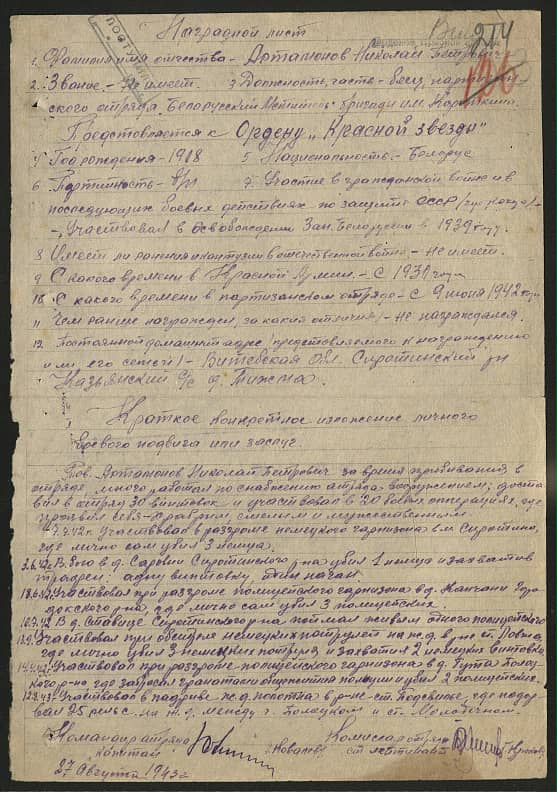 Наградной лист
214
1. Фамилия имя отчество - Артамонов Николай Петрович
2. Звание - Не имеет. 3 Должность, часть - боец, партизан
ского отряда, Белорусский бригады им. Короткина
Представляется к Ордену "Красной звезды"
4 Год рождения - 1918 5 Национальность - Белорус
6 Партийность - 7. Участие в гражданской войне и в
последующих боевых действиях по защите СССР
- Участвовал в освобождении Зап. Белоруссии в 1939 году.
8 Имеет ли ранения и контузии в отечественной войне - не имеет.
9 С какого времени в Красной Армии - С года
10 С какого времени в партизанском отряде - с 9 июня 1942 года
11 Чем ранее награжден, за какия отличия - Не награждался.
12 Постоянной домашний адрес (представляемого к награждению
и его семьи) - Витебская обл. Сиротинский р-н
Казьянский с/с д.
Краткое конкретное изложение личного
боевого подвига или заслуг
Тов. Артамонов Николай Петрович за время прибывания в
отряде много работал по снабжению отряда вооружением, доста
вил в отряд 30 винтовок и участвовал в 20 боевых операциях, где
проявил себя храбрым смелым и мужественным.
Участвовал в разгроме немецкого гарнизона в м. Сиротино,
где лично сам убил 3 немца.
в д. Сиротинского р-на убил 1 немца и захватив
трофеи: одну винтовку наган.
Участвовал при разгроме полицейского гарнизона в д. Горо
докского р-на, где лично сам убил 3 полицейских.
В д. Ставице Сиротинского р-на поймал живьем одного полицейского
Участвовал при обстреле немецких патрулей на ж.д. в р-не
где лично убил 3 немецких патруля и захватил 2 немецких винтовки
Участвовал при разгроме полицейского гарнизона в д. Гута Полоц
кого р-не, где забросал гранатами общежитие полиции и убил 2 полицейских.
Участвовал в подрыве ж.д. полотна в р-не ст. Подсвилье, где подор
вал 75 рельс. на ж.д. между г. Полоцком и ст. Молодечном.
Командир отряда Комиссар отряда
капитан /Ковалев/ ст. лейтенант
27 Августа 1943 г